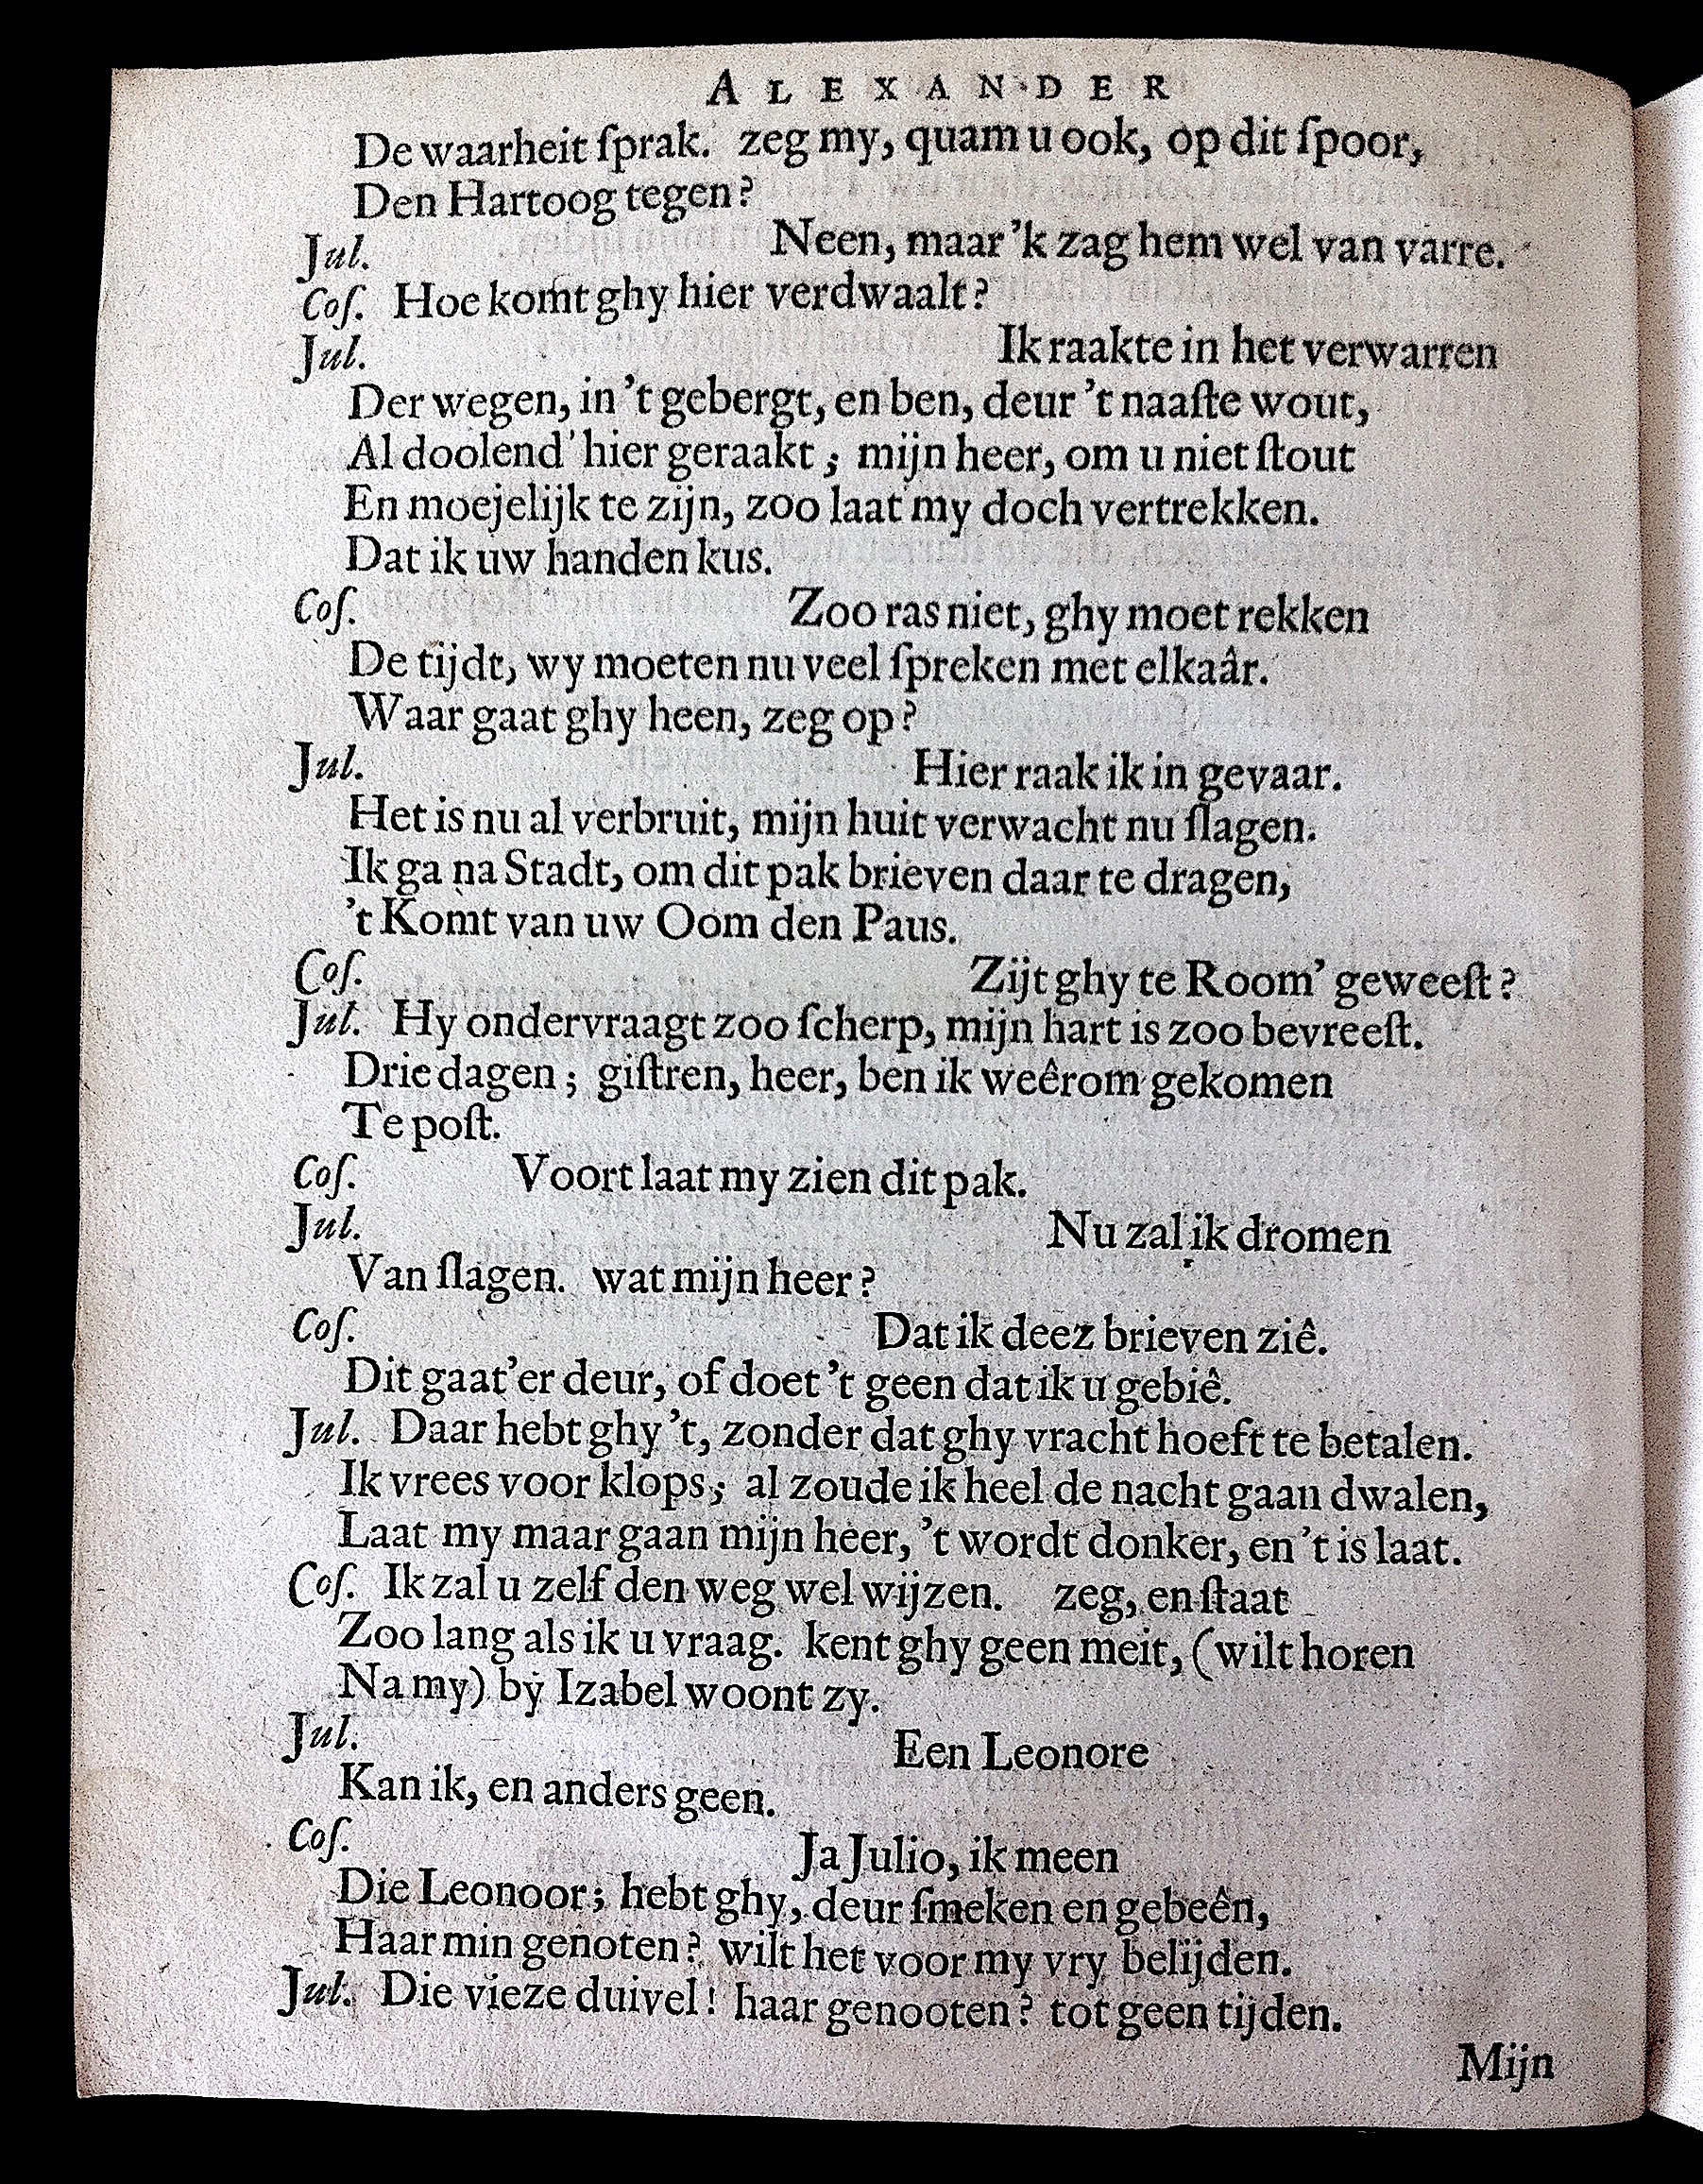 ALEXANDER
De waarheit ſprak. zeg my, quam u ook, op dit ſpoor,
Den Hartoog tegen?
Jul. Neen, maar 'k zag hem wel van varre.
Coſ. Hoe komt ghy hier verdwaalt?
Jul. Ik raakte in het verwarren
Der wegen, in 't gebergt, en ben, deur 't naaſte wout,
Al doolend' hier geraakt; mijn heer, om u niet ſtout
En moejelijk te zijn, zoo laat my doch vertrekken.
Dat ik uw handen kus.
Coſ. Zoo ras niet, ghy moet rekken
De tijdt, wy moeten nu veel ſpreken met elkaâr.
Waar gaat ghy heen, zeg op?
Jul. Hier raak ik in gevaar.
Het is nu al verbruit, mijn huit verwacht nu ſlagen.
Ik ga na Stadt, om dit pak brieven daar te dragen,
't Komt van uw Oom den Paus.
Coſ. Zijt ghy te Room' geweeſt?
Jul. Hy ondervraagt zoo ſcherp, mijn hart is zoo bevreeſt.
Drie dagen; giſtren, heer, ben ik weêrom gekomen
Te poſt.
Coſ. Voort laat my zien dit pak.
Jul. Nu zal ik dromen
Van ſlagen. wat mijn heer?
Coſ. Dat ik deez brieven ziê.
Dit gaat'er deur, of doet 't geen dat ik u gebiê.
Jul. Daar hebt ghy 't, zonder dat ghy vracht hoeft te betalen.
Ik vrees voor klops; al zoude ik heel de nacht gaan dwalen,
Laat my maar gaan mijn heer, 't wordt donker, en 't is laat.
Coſ. Ik zal u zelf den weg wel wijzen. zeg, en ſtaat
Zoo lang als ik u vraag. kent ghy geen meit, (wilt horen
Na my) by Izabel woont zy.
Jul. Een Leonore
Kan ik, en anders geen.
Coſ. Ja Julio, ik meen
Die Leonoor; hebt ghy, deur ſmeken en gebeên,
Haar min genoten? wilt het voor my vry belijden.
Jul. Die vieze duivel! haar genooten? tot geen tijden.
Mijn